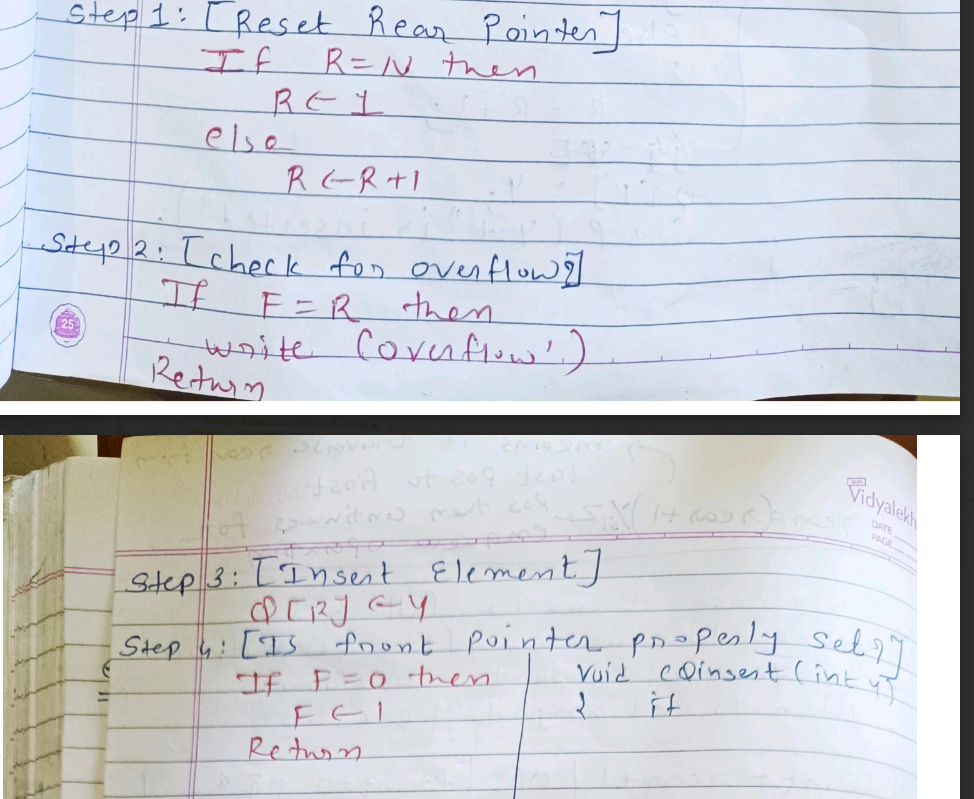 Step 1: [Reset Rear Pointer]
If R=N then
R ← 1
else
R ← R+1
Step 2: [check for overflow?]
If F=R then
write (overflow'.)
Return
25
Vidyalekh
DATE
PAGE
Step 3: [Insert Element]
Q[R] ← y
Step 4: [Is front pointer properly set?]
If F=0 then
F ← 1
Return
void cQinsert (int y)
{ if